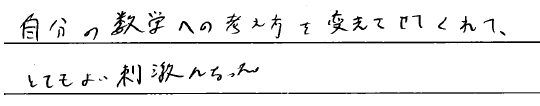 自分の数学への考え方を変えてせてくれて、
とてもよい刺激になった